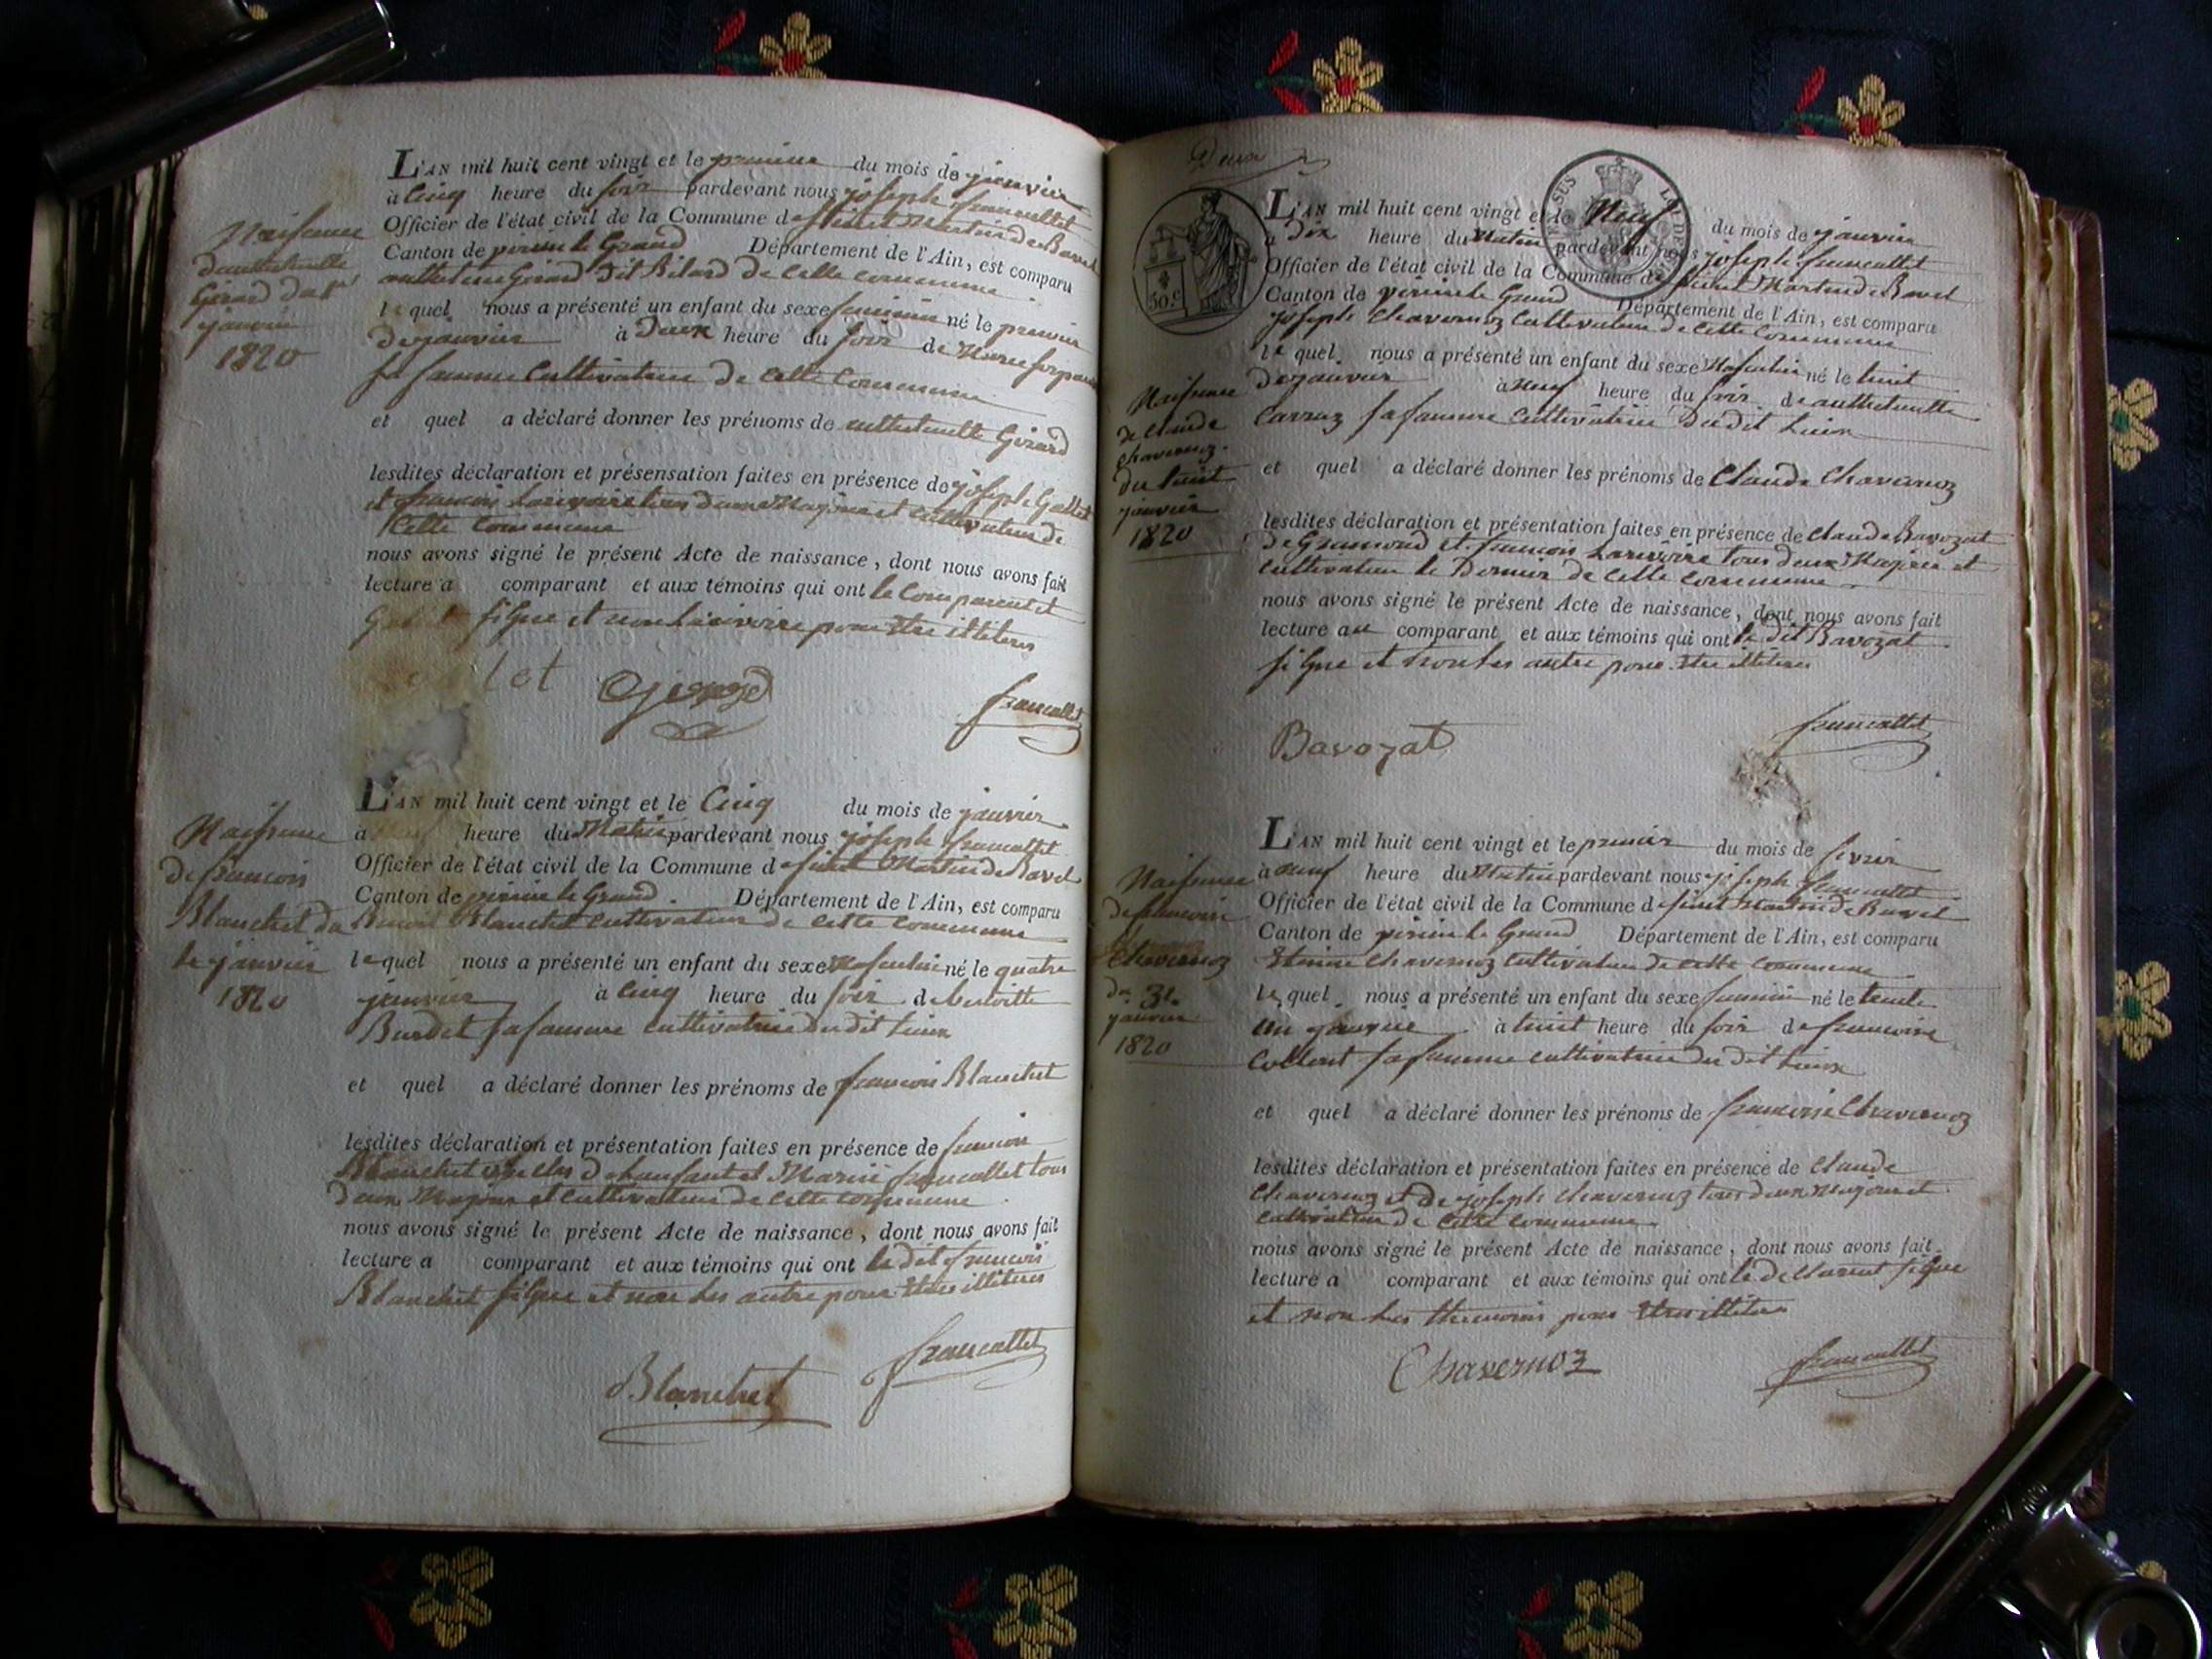 Naissance
Gérard du 1er
janvier
1820
L'AN mil huit cent vingt et le premier du mois de janvier
à Cinq heure du soir pardevant nous joseph francallet
Officier de l'état civil de la Commune de saint Martin de Bavel
Canton de virieu le Grand Département de l'Ain, est comparu
Girard dit Bilard de Cette commune
le quel nous a présenté un enfant du sexe feminin né le premier
de janvier à Deux heure du soir de Marie
sa femme Cultivatrice de Cette Commune
et quel a déclaré donner les prénoms de anthelmette Girard
lesdites déclaration et présensation faites en présence de joseph Gallet
et francois Larivoire tous deux Majeur et cultivateur de
Cette Commune
nous avons signé le présent Acte de naissance, dont nous avons fait
lecture a comparant et aux témoins qui ont le Comparent et
signe et non Larivoire pour etre illiteres
let Girard francallet
Naissance
de francois
Blanchet du
le janvier
1820
L'AN mil huit cent vingt et le Cinq du mois de janvier
à heure du Matin pardevant nous joseph francallet
Officier de l'état civil de la Commune de saint Martin de Bavel
Canton de virieu le Grand. Département de l'Ain, est comparu
Benoit Blanchet cultivateur de cette commune
le quel nous a présenté un enfant du sexe Masculin né le quatre
janvier à Cinq heure du soir de
Burdet sa femme cultivatrice du dit Lieux
et quel a déclaré donner les prénoms de francois Blanchet
lesdites déclaration et présentation faites en présence de francois
Blanchet de et francallet tous
deux Majeur et cultivateur de cette commune
nous avons signé le présent Acte de naissance, dont nous avons fait
lecture a comparant et aux témoins qui ont le dit francois
Blanchet signe et non Les autre pour etres illiteres
Blanchet francallet
Deux
50.c
Naissance
de Claude
Chavernoz.
du huit
janvier
1820
L'AN mil huit cent vingt et le Neuf du mois de janvier
à Dix heure du Matin pardevant nous joseph francallet
Officier de l'état civil de la Commune de saint Martin de Bavel
Canton de virieu le Grand Département de l'Ain, est comparu
joseph Chavernoz Cultivateur de Cette Commune
le quel nous a présenté un enfant du sexe Masculin né le huit
de janvier à neuf heure du soir de anthelmette
Carraz sa femme Cultivatrice du dit Lieux
et quel a déclaré donner les prénoms de Claude Chavernoz
lesdites déclaration et présentation faites en présence de Claude Bavozat
de Gramond et francois Larivoire tous deux Majeur et
cultivateur le Dernier de Cette Commune
nous avons signé le présent Acte de naissance, dont nous avons fait
lecture au comparant et aux témoins qui ont le dit Bavozat
signe et non les autre pour etre illiteres
Bavozat francallet
Naissance
de francoise
Chavernoz
du 31.
janvier
1820
L'AN mil huit cent vingt et le premier du mois de fevrier
à neuf heure du Matin pardevant nous joseph francallet
Officier de l'état civil de la Commune de saint Martin de Bavel
Canton de virieu le Grand Département de l'Ain, est comparu
Etienne Chavernoz Cultivateur de cette commune
le quel nous a présenté un enfant du sexe feminin né le trente
un janvier à huit heure du soir de francoise
sa femme cultivatrice du dit Lieux
et quel a déclaré donner les prénoms de francoise Chavernoz
lesdites déclaration et présentation faites en présence de Claude
Chavernoz et de joseph Chavernoz tous deux majeur et
cultivateur de Cette commune
nous avons signé le présent Acte de naissance, dont nous avons fait
lecture a comparant et aux témoins qui ont le declarent signe
et non Les themoins pour etre illiteres
Chavernoz francallet